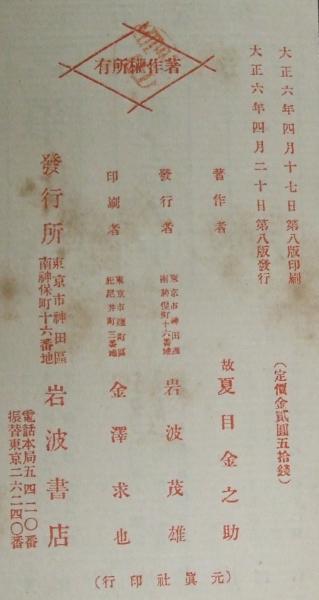 大正六年四月十七日第八版印刷
大正六年四月二十日第八版發行
（定價金貳圓五拾錢）
著作權所有
著作者
故 夏目金之助
發行者
東京市神田區
南神保町十六番地
岩波茂雄
印刷者
東京市麹町區
金澤求也
發行所
東京市神田區
南神保町十六番地
岩波書店
電話本局五四二〇番
振替東京二六二四〇番
（元眞社印行）